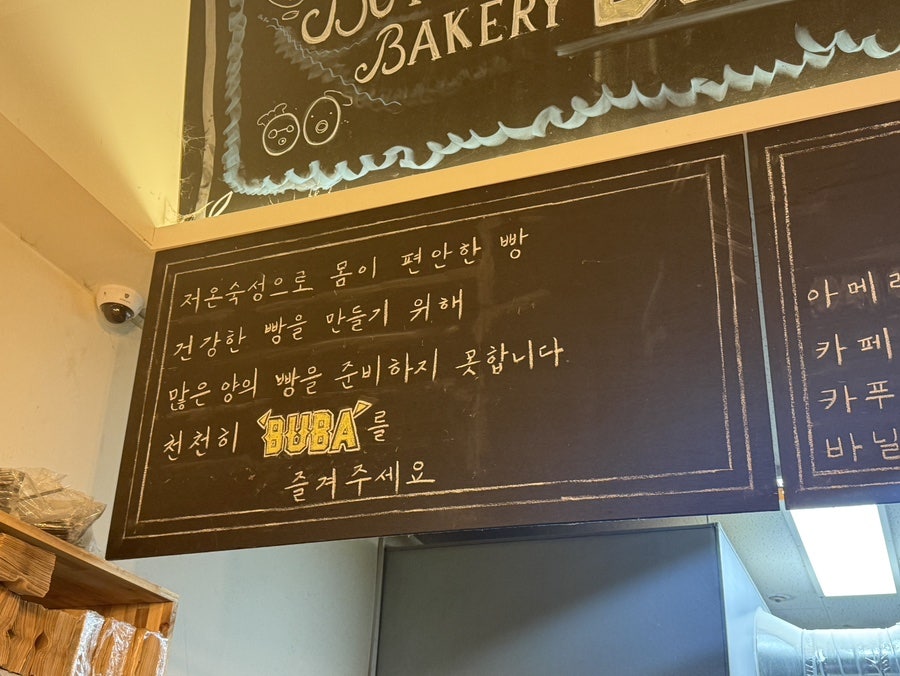 BAKERY
저온숙성으로 몸이 편안한 빵
건강한 빵을 만들기 위해
많은 양의 빵을 준비하지 못합니다
천천히 'BUBA'를
즐겨주세요
카페